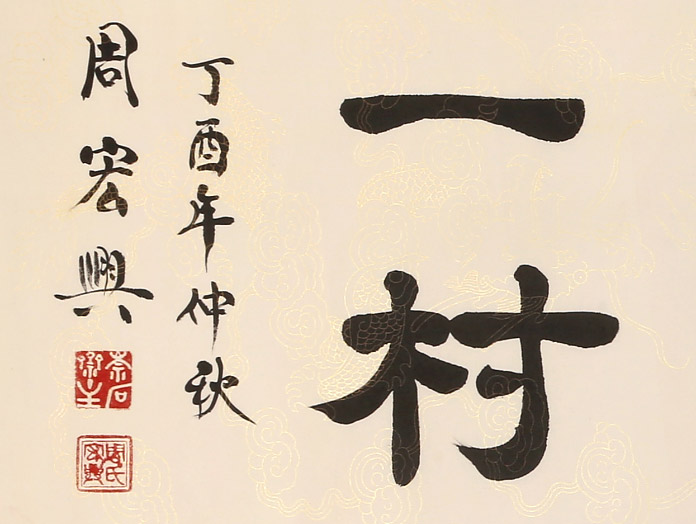 一村
丁酉年仲秋
周宏興